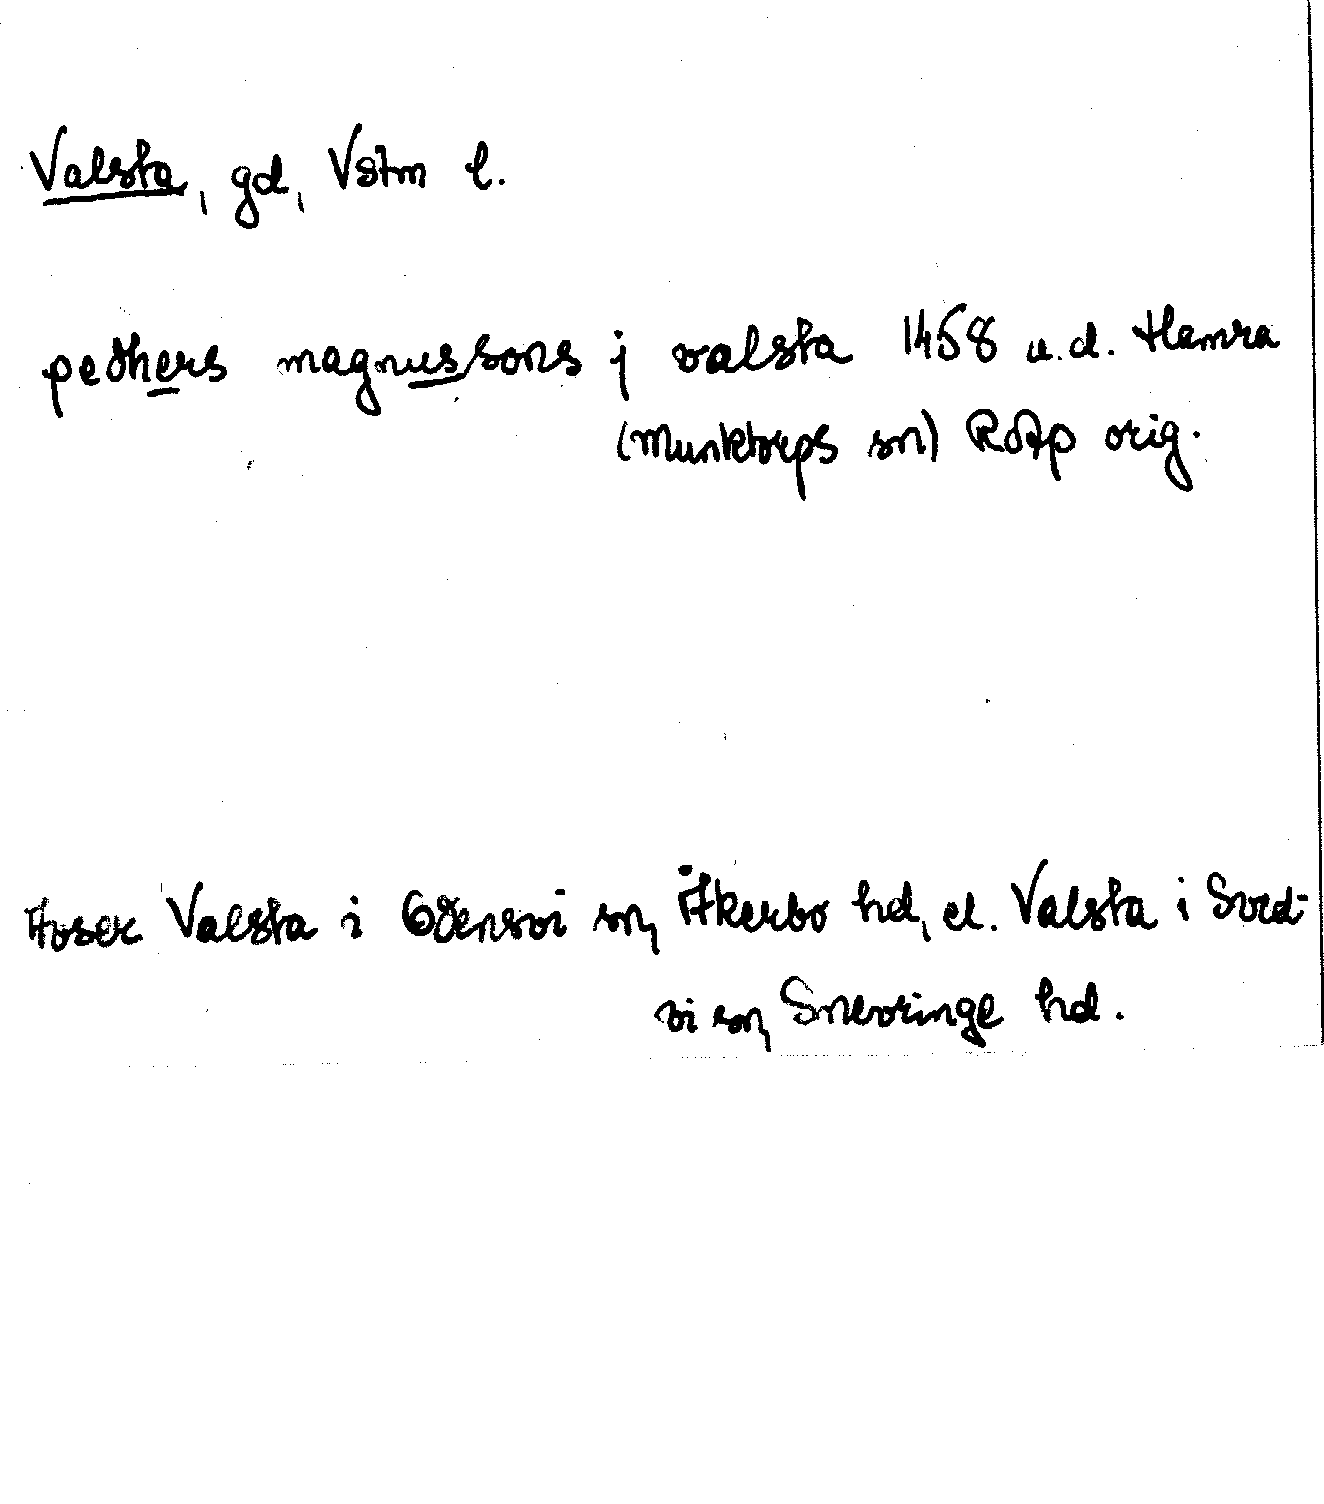 Valsta, gd, Vstm l.
pedhers magnussons j valsta 1458 u.d. Hamra
(Munktorps sn) RAp orig.
Avser Valsta i Odensvi sn, Åkerbo hd, el. Valsta i Sved-
vi sn, Snevringe hd.